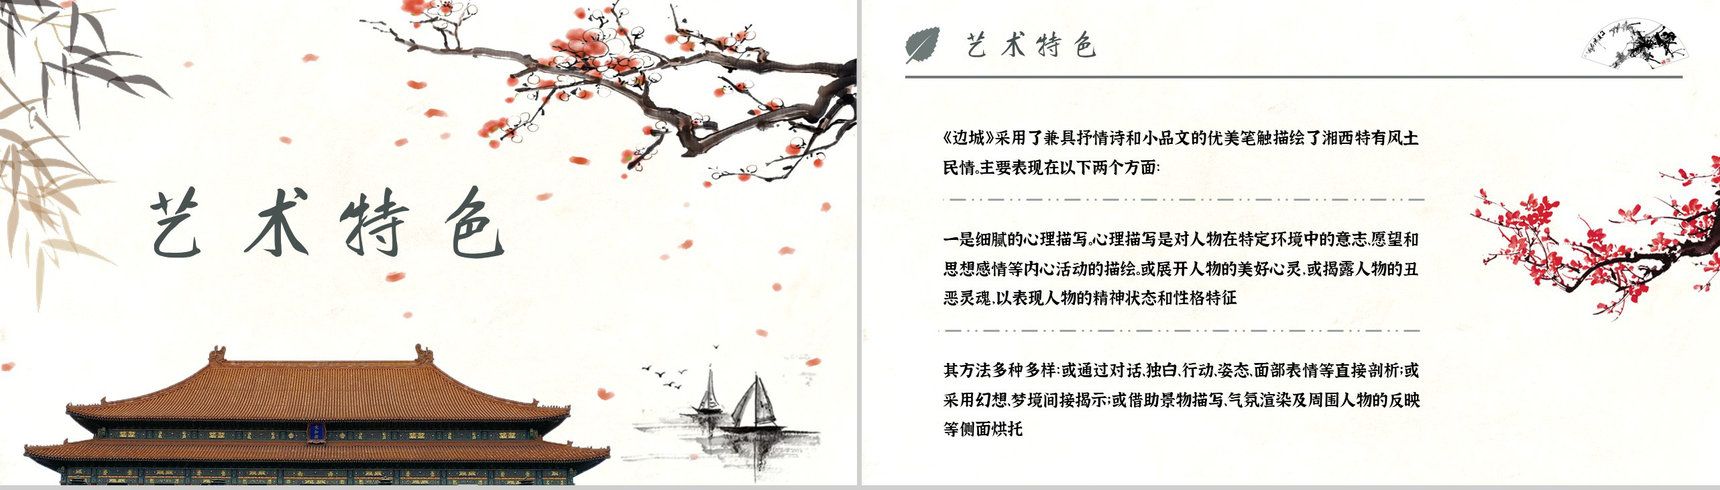 艺术特色
艺术特色
《边城》采用了兼具抒情诗和小品文的优美笔触描绘了湘西特有风土
民情。主要表现在以下两个方面：
一是细腻的心理描写。心理描写是对人物在特定环境中的意志、愿望和
思想感情等内心活动的描绘，或展开人物的美好心灵，或揭露人物的丑
恶灵魂，以表现人物的精神状态和性格特征
其方法多种多样：或通过对话、独白、行动、姿态、面部表情等直接剖析；或
采用幻想、梦境间接揭示；或借助景物描写、气氛渲染及周围人物的反映
等侧面烘托